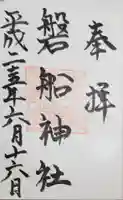 奉拝
磐船神社
平成二五年六月十六日